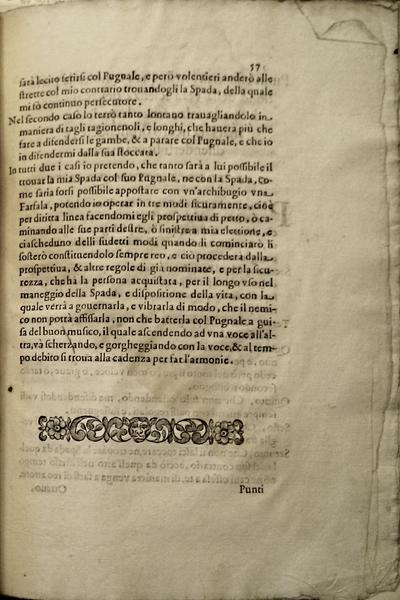 57
sarà lecito ferirsi col Pugnale, e però volentieri anderò alle
strette col mio contrario trouandogli la Spada, della quale
mi fò continuo persecutore.
Nel secondo caso lo terrò tanto lontano trauagliandolo in
maniera di tagli ragioneuoli, e longhi, che hauerà più che
fare a difendersi le gambe, & a parare col Pugnale, e che io
in difendermi dalla sua stoccata.
In tutti due i casi io pretendo, che tanto sarà a lui possibile il
trouar la mia Spada col suo Pugnale, ne con la Spada, co-
me saria forsi possibile appostare con vn'archibugio vna
Farfala, potendo io operar in tre modi sicuramente, cioè
per diritta linea facendomi egli prospettiua di petto, ò ca-
minando alle sue parti destre, ò sinistre a mia elettione, e
ciascheduno delli sudetti modi quando li cominciarò li
fosterò constituendolo sempre reo, e ciò procederà dalla
prospettiua, & altre regole di già nominate, e per la sicu-
rezza, che hà la persona acquistata, per il longo vso nel
maneggio della Spada, e dispositione della vita, con la
quale verrà a gouernarla, e vibrarla di modo, che il nemi-
co non potrà affissarla, non che batterla col Pugnale a gui-
sa del buon musico, il quale ascendendo ad vna voce all'al-
tra, và scherzando, e gorgheggiando con la voce, & al tem-
po debito si troua alla cadenza per far l'armonie.
Punti